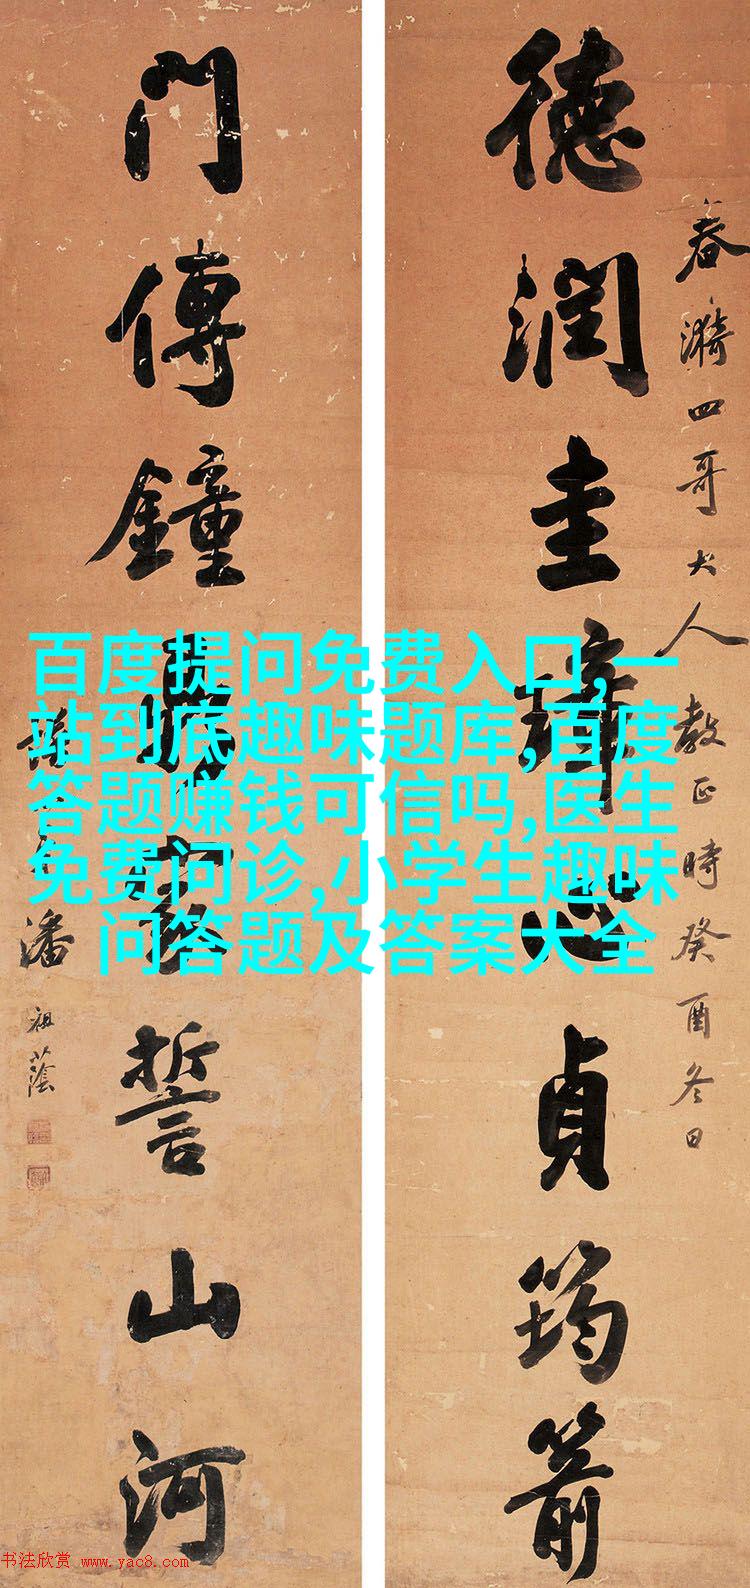 德潤圭璋心貞筠箭
春漪四哥大人教正時癸酉冬日
門傳鐘
誓山河
潘祖蔭
百度提问免费入口,一
站到底趣味题库,百度
答题赚钱可信吗,医生
免费问诊,小学生趣味
问答题及答案大全
书法欣赏 www.yac8.com